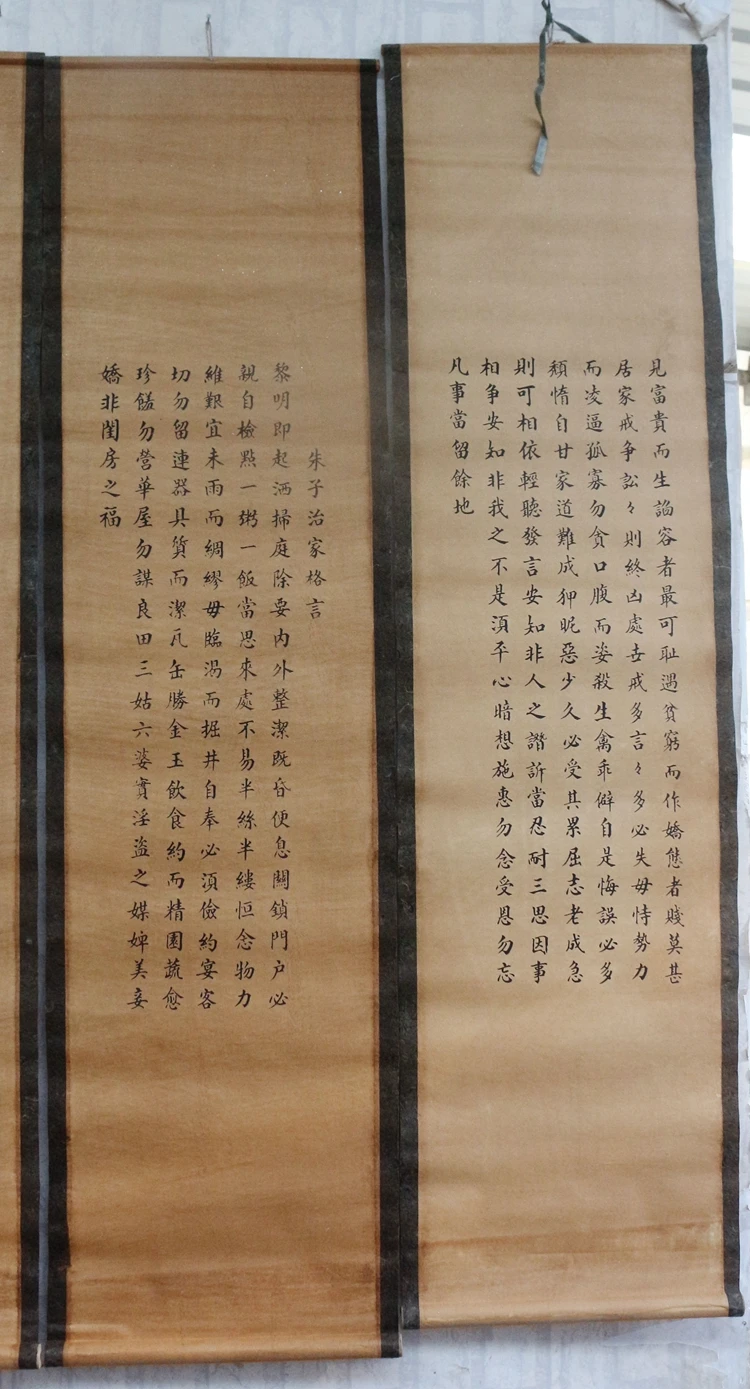 見富貴而生諂容者最可耻遇貧窮而作嬌態者賤莫甚
居家戒争訟々則終凶處世戒多言々多必失毋恃勢力
而凌逼孤寡勿貪口腹而姿殺生禽乖僻自是悔誤必多
頹惰自甘家道難成狎昵惡少久必受其累屈志老成急
則可相依輕聽發言安知非人之譖訴當忍耐三思因事
相争安知非我之不是須平心暗想施惠勿念受恩勿忘
凡事當留餘地
朱子治家格言
黎明即起洒掃庭除要內外整潔既昏便息關鎖門户必
親自檢點一粥一飯當思來處不易半絲半縷恒念物力
維艱宜未雨而綢繆毋臨渴而掘井自奉必須儉約宴客
切勿留連器具質而潔瓦缶勝金玉飲食約而精園蔬愈
珍饈勿營華屋勿謀良田三姑六婆實淫盜之媒婢美妾
嬌非閨房之福